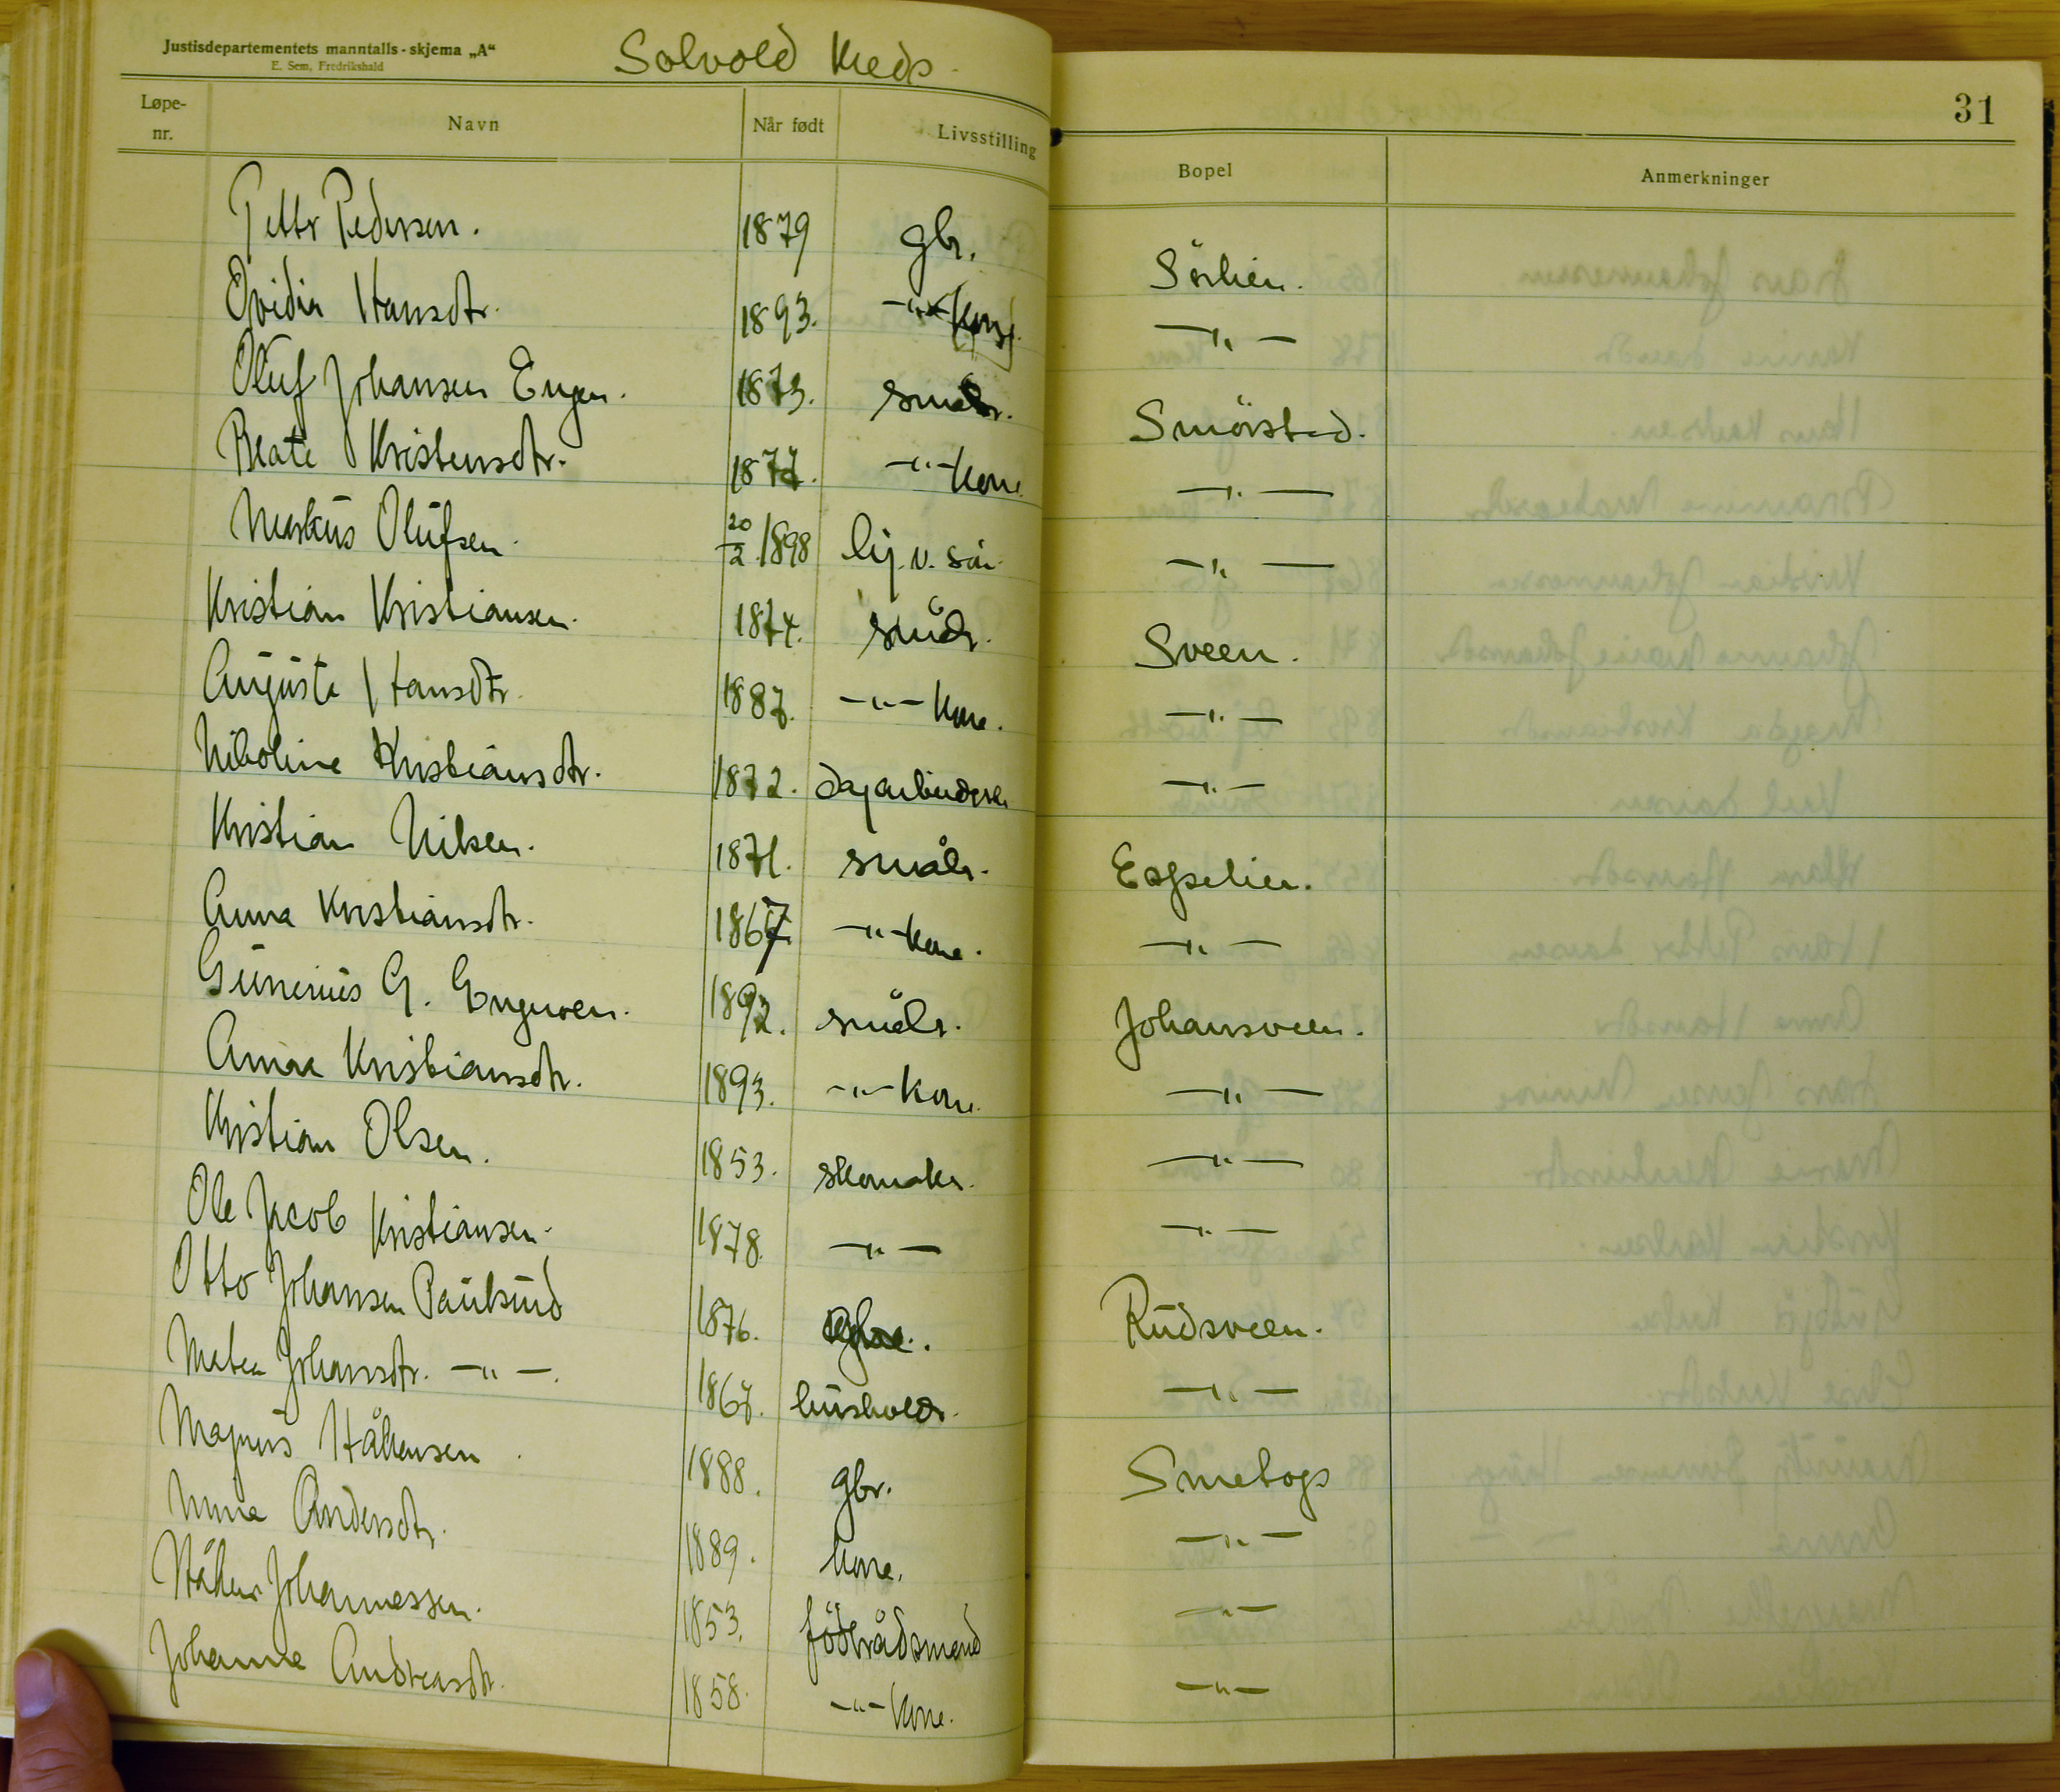 Justisdepartementets manntalls-skjema „A“
E. Sem, Fredrikshald
Solvold Kreds
31
Løpe-nr. Navn Når født Livsstilling Bopel Anmerkninger
Petter Pedersen. 1879 gbr. Sörlien.
Ovidia Hansdtr. 1893. -"- kone -"-
Oluf Johansen Engen. 1873. småbr. Smörstad.
Beate Kristensdtr. 1877. -"- kone -"-
Markus Olufsen 20/2 1898 hj. v. sön -"-
Kristian Kristiansen. 1874. småbr. Sveen.
Auguste Hansdtr. 1887. -"- kone. -"-
Nikoline Kristiansdtr. 1872. dagarbeiderske -"-
Kristian Nilsen. 1871. småbr. Espelien.
Anna Kristiansdtr. 1867. -"- kone. -"-
Gunerius G. Engmoen. 1892. småbr. Johansveen.
Anna Kristiansdtr. 1893. -"- kone. -"-
Kristian Olsen. 1853. skomaker. -"-
Ole Jacob Kristiansen. 1878. -"- -"-
Otto Johansen Paulsrud 1876. Rudsveen.
Matea Johansdtr. -"-. 1867. husholdr. -"-
Magnus Håkensen 1888. gbr. Smetops
Anna Andersdtr. 1889. kone. -"-
Håken Johannessen. 1853. föderådsmand -"-
Johanne Andreasdtr. 1858. -"- kone. -"-